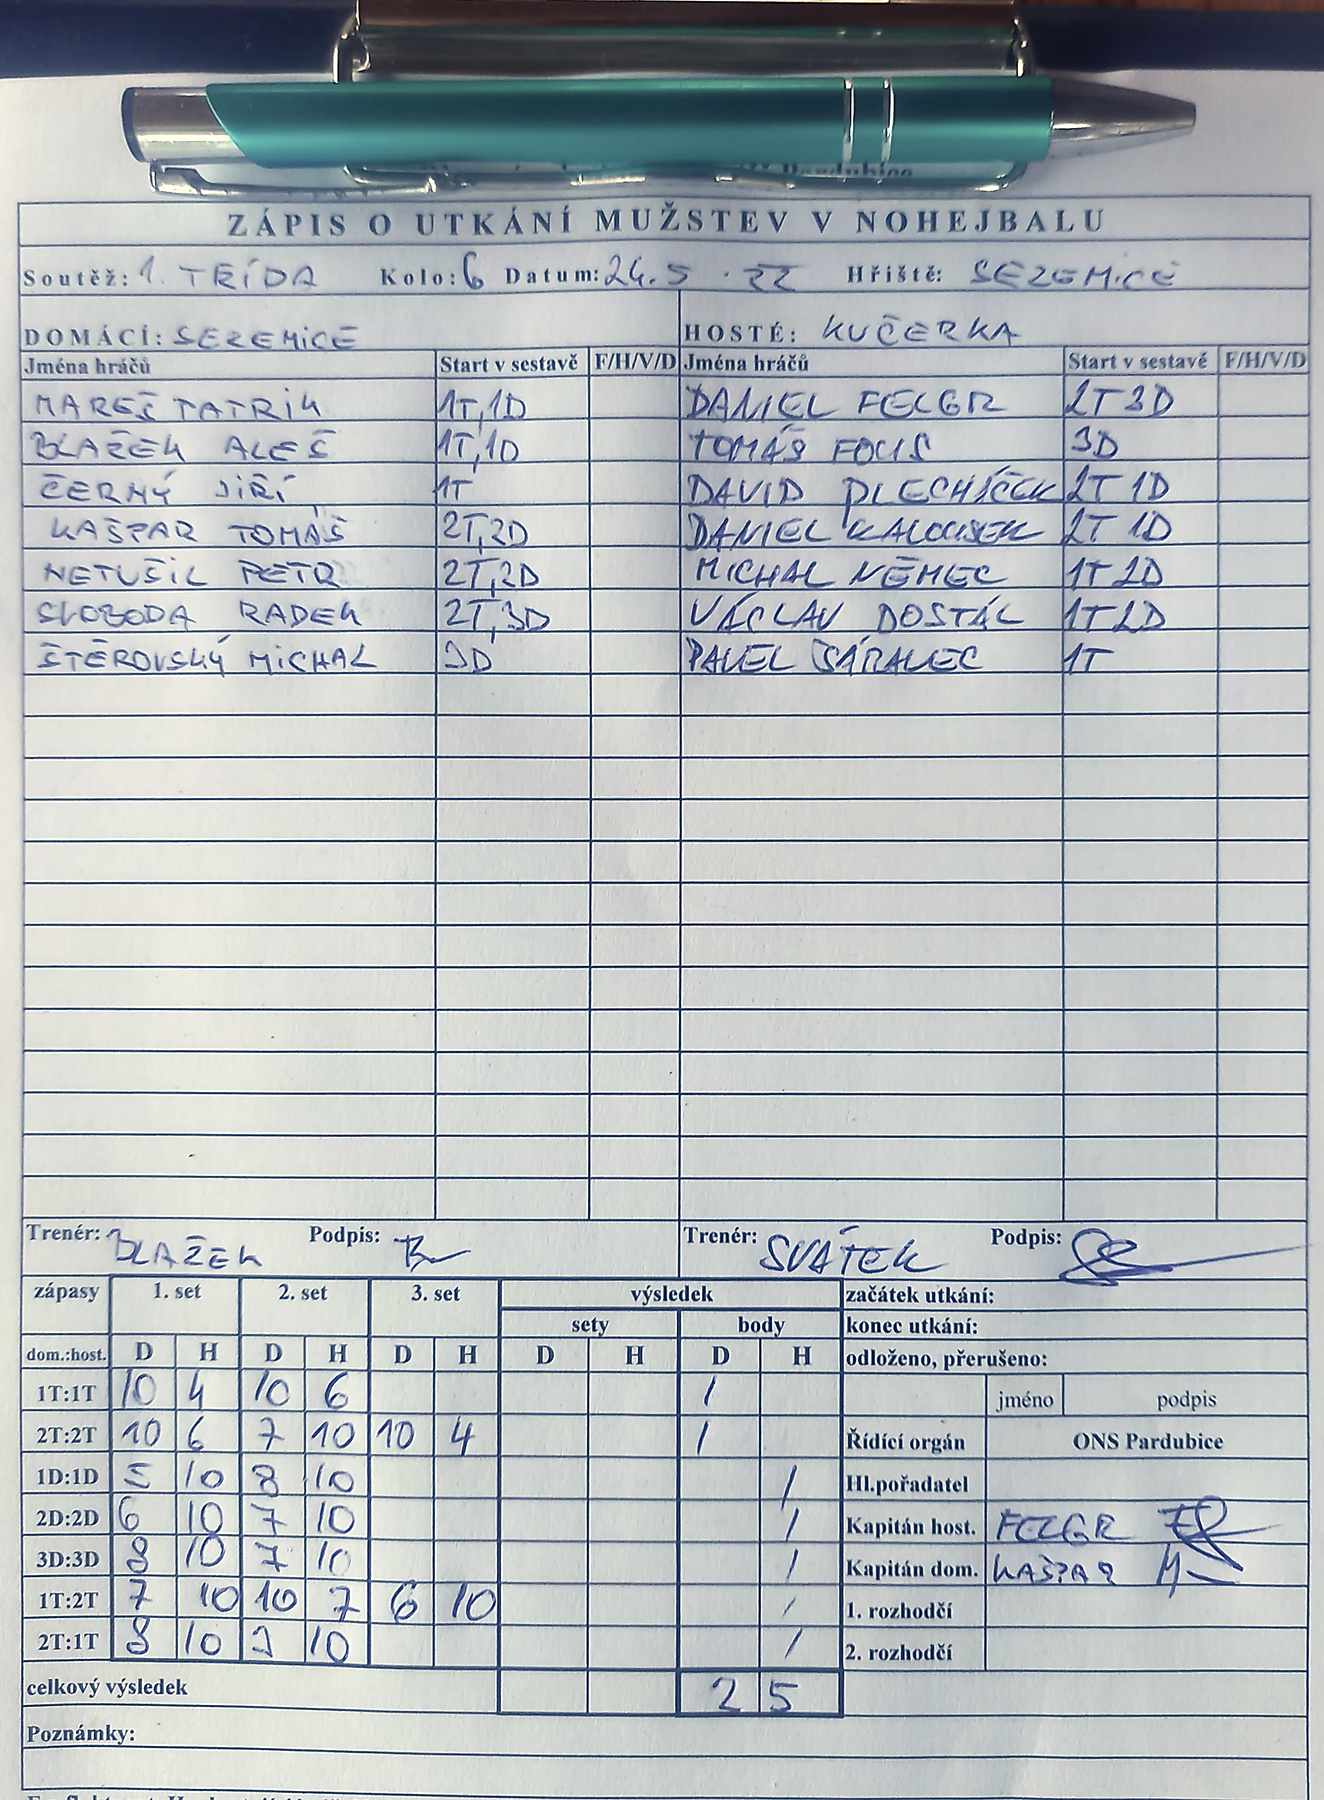 Pardubice
ZÁPIS O UTKÁNÍ MUŽSTEV V NOHEJBALU
Soutěž: 1. TŘÍDA Kolo: 6 Datum: 24.5 .22 Hřiště: SEZEMICE
DOMÁCÍ: SEZEMICE HOSTÉ: KUČERKA
Jména hráčů Start v sestavě F/H/V/D Jména hráčů Start v sestavě F/H/V/D
MAREŠ PATRIK 1T,1D DANIEL FELGR 2T 3D
BLAŽEK ALEŠ 1T,1D TOMÁŠ 3D
ČERNÝ JIŘÍ 1T DAVID PLECHÁČEK 2T 1D
KAŠPAR TOMÁŠ 2T,2D DANIEL KALOUSEK 2T 1D
NETUŠIL PETR 2T,2D MICHAL NĚMEC 1T 2D
SVOBODA RADEK 2T,3D VÁCLAV DOSTÁL 1T 2D
ŠTĚROVSKÝ MICHAL 3D PAVEL 1T
Trenér: BLAŽEK Podpis: Trenér: SVÁTEK Podpis:
zápasy 1. set 2. set 3. set výsledek začátek utkání:
sety body konec utkání:
dom.:host. D H D H D H D H D H odloženo, přerušeno:
1T:1T 10 4 10 6 / jméno podpis
2T:2T 10 6 7 10 10 4 / Řídící orgán ONS Pardubice
1D:1D 5 10 8 10 / Hl.pořadatel
2D:2D 6 10 7 10 / Kapitán host. FELGR
3D:3D 8 10 7 10 / Kapitán dom. KAŠPAR
1T:2T 7 10 10 7 6 10 / 1. rozhodčí
2T:1T 8 10 10 / 2. rozhodčí
celkový výsledek 2 5
Poznámky: